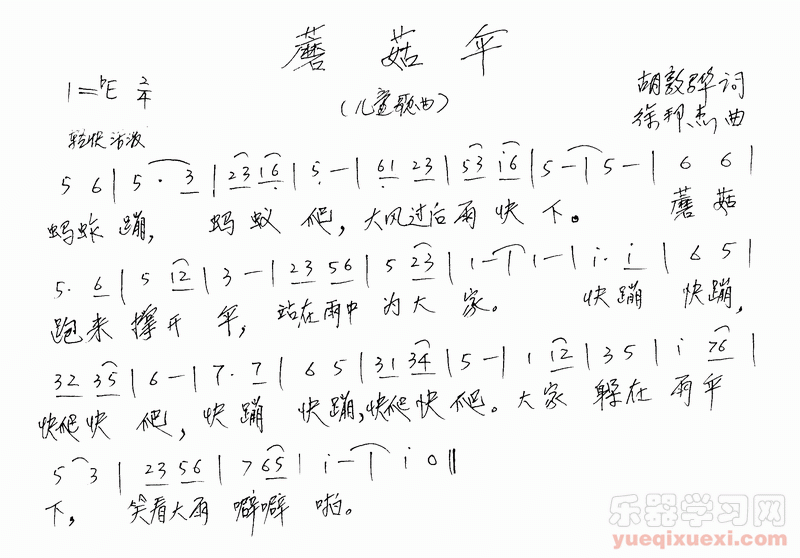 蘑菇伞
1=♭E 2/4
(儿童歌曲)
胡敦骅 词
徐邦杰 曲
轻快 活泼
5 6 | 5 · 3 | 23 16 | 5 — | 61 23 | 53 i6 | 5 — | 5 — | 6 6 |
蚂蚱蹦, 蚂蚁爬, 大风过后雨快下。 蘑菇
5· 6 | 5 12 | 3 — | 23 56 | 5 23 | 1 — | 1 — | i· i | 6 5 |
跑来撑开伞, 站在雨中为大家。 快蹦快蹦,
32 35 | 6 — | 7· 7 | 6 5 | 31 34 | 5 — | 1 12 | 3 5 | i 76 |
快爬快爬, 快蹦快蹦,快爬快爬。大家躲在雨伞
5 3 | 23 56 | 7 65 | i — | i 0 ‖
下, 笑看大雨噼噼啪。
乐器学习网
yueqixuexi.com